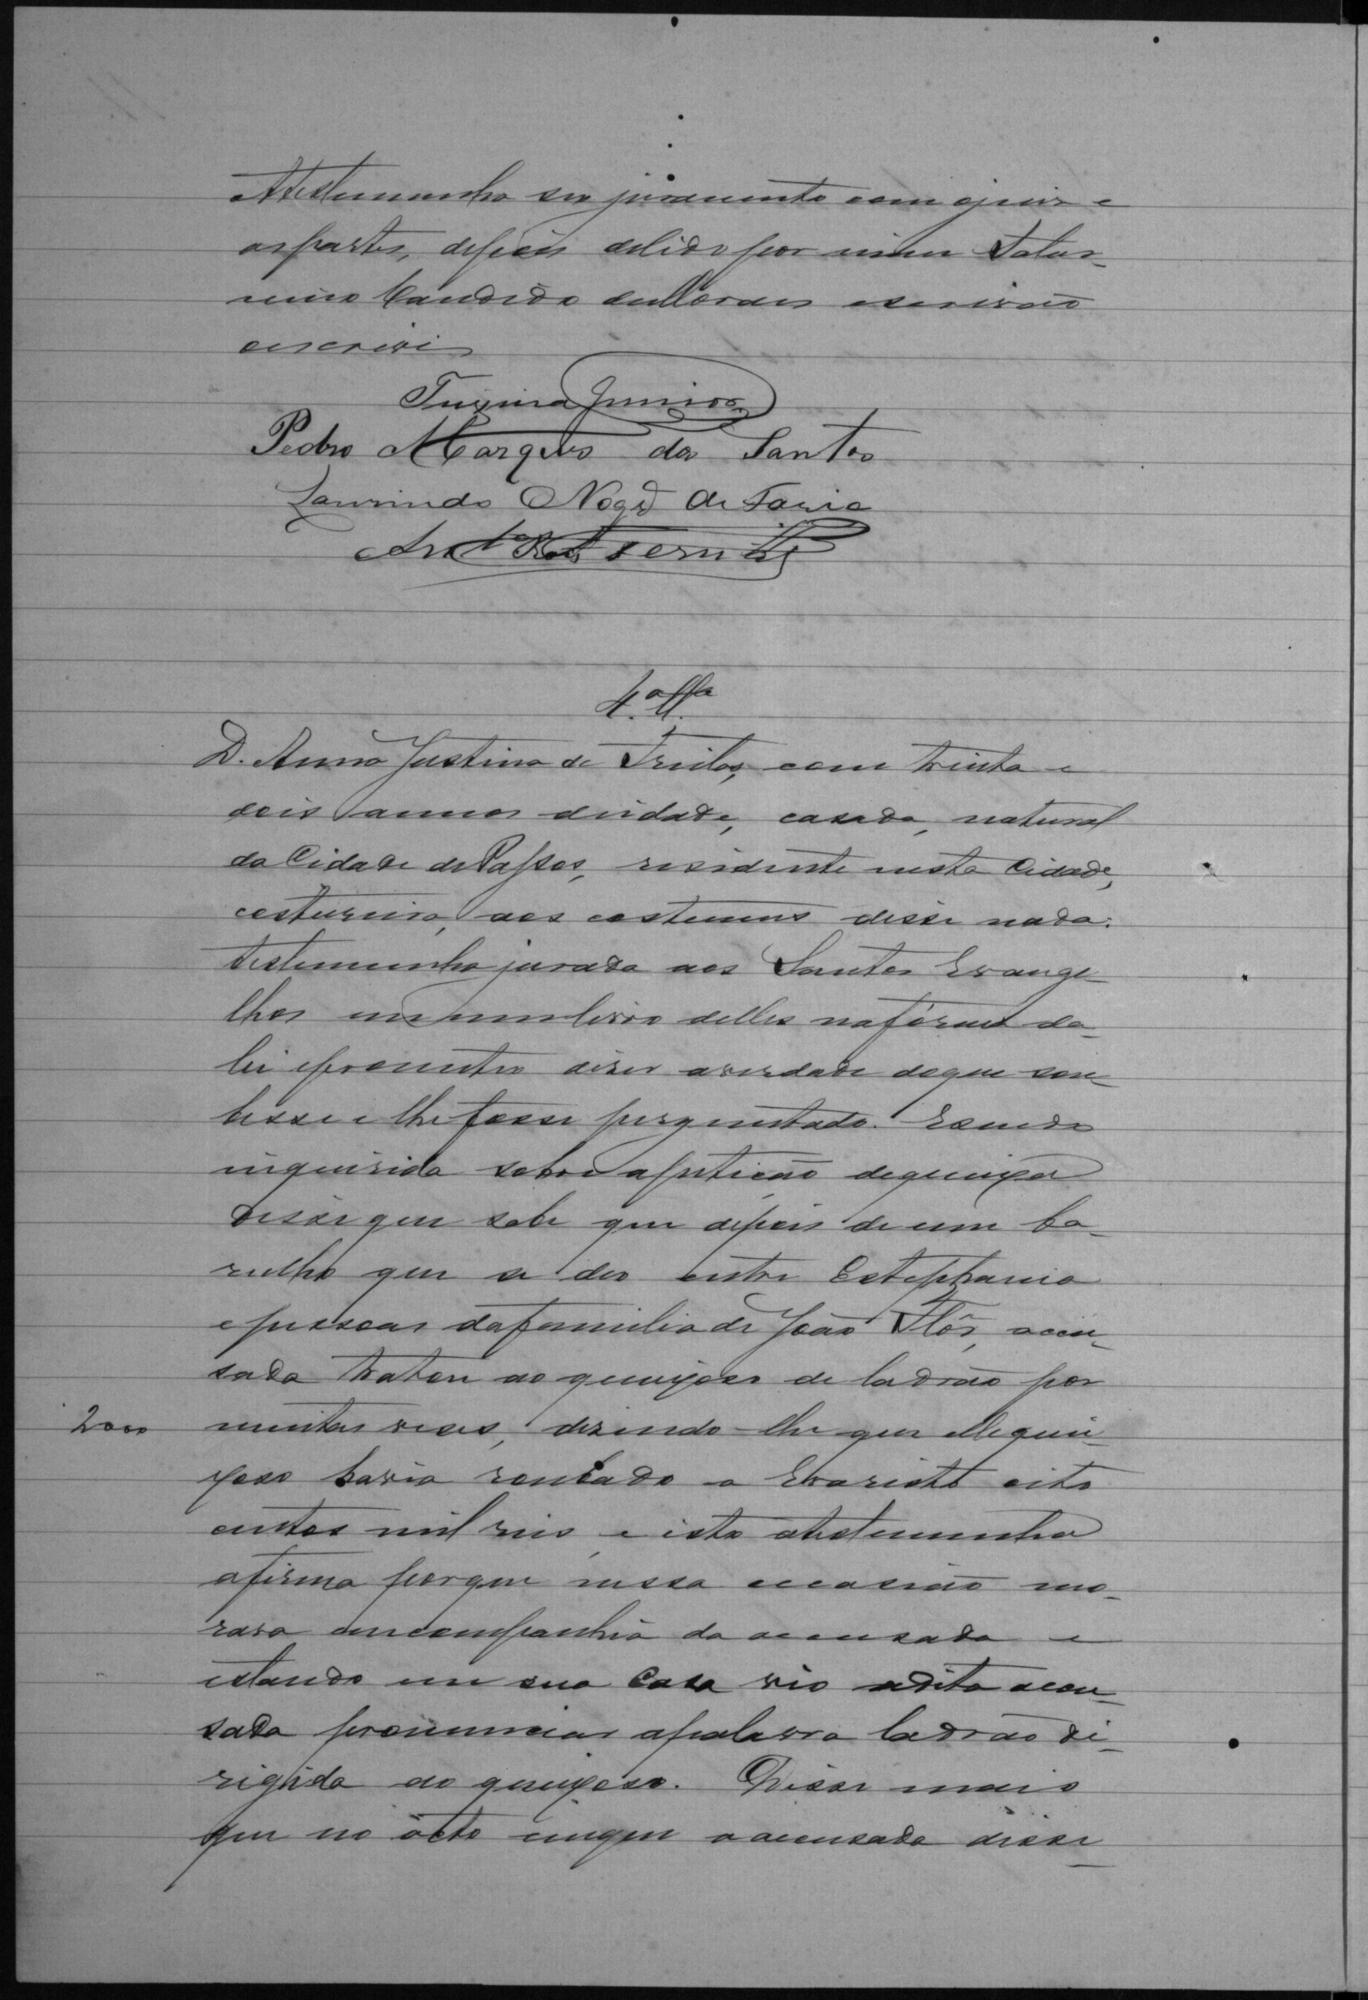 atestemunha seu juramento com ojuis e
aspartes, depois delido por mim Satur-
nino Candido deMoraes escrivão
oescrivi
Teixeira Junior
Pedro Marques dos Santos
Laurindo Nogª de Faria
4.ª Tª
D. Anna Justina de Freitas, com trinta e
dois annos deidade, casada, natural
da Cidade de Passos, residente nesta Cidade,
costureira, aos costumes disse nada.
testemunha jurada aos Santos Evange-
lhos em um livro delles nafórma da
lei eprometeo diser averdade doque sou-
besse e lhe fosse perguntado. Esendo
inquirida sobre apetição dequeixa
Disse que sabe que depois de um ba-
rulho que se deo entre Estephania
epessoas dafamilia de João Flôr, acu-
sada tratou ao queixoso de ladrão por
2000 muitas veses, disendo-lhe que elle quei-
xoso havia roubado a Evaristo oito
centos mil reis, e isto atestemunha
afirma porque nessa occasião mo-
rava emcompanhia da accusada e
estando em sua Casa vio adita acou-
sada pronunciar apalavra ladrão di-
rigida ao queixoso. Disse mais
que no acto emque a accusada disse